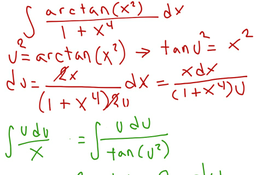 ∫ arctan(x²) / 1 + x⁴ dx
u² = arctan(x²) → tan u² = x²
du = 2x / (1 + x⁴)2u dx = x dx / (1 + x⁴) u
∫ u du / x = ∫ u du / tan(u²)